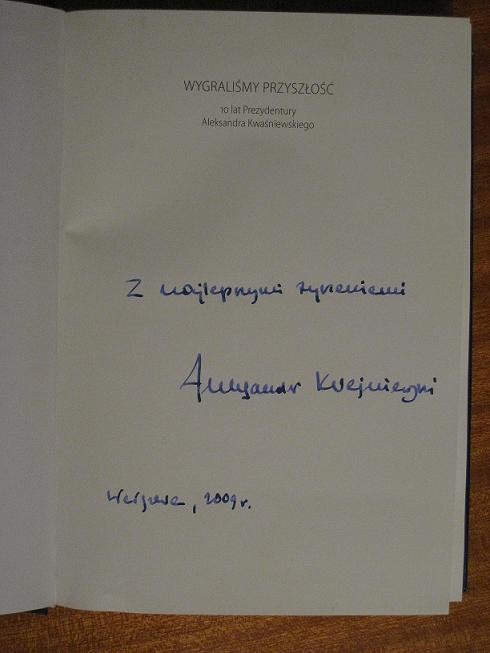 WYGRALIŚMY PRZYSZŁOŚĆ
10 lat Prezydentury
Aleksandra Kwaśniewskiego
Z najlepszymi życzeniami
Aleksander Kwaśniewski
Warszawa, 2009 r.